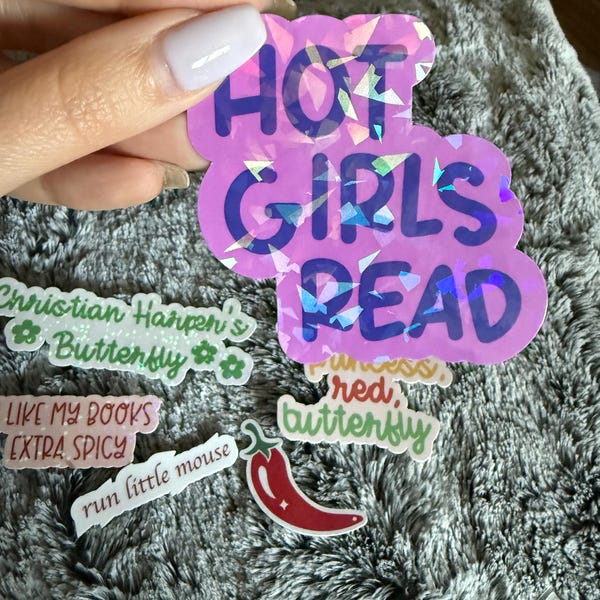 HOT
GIRLS
READ
Christian Harper's
Butterfly
princess,
red,
butterfly
I LIKE MY BOOKS
EXTRA SPICY
run little mouse